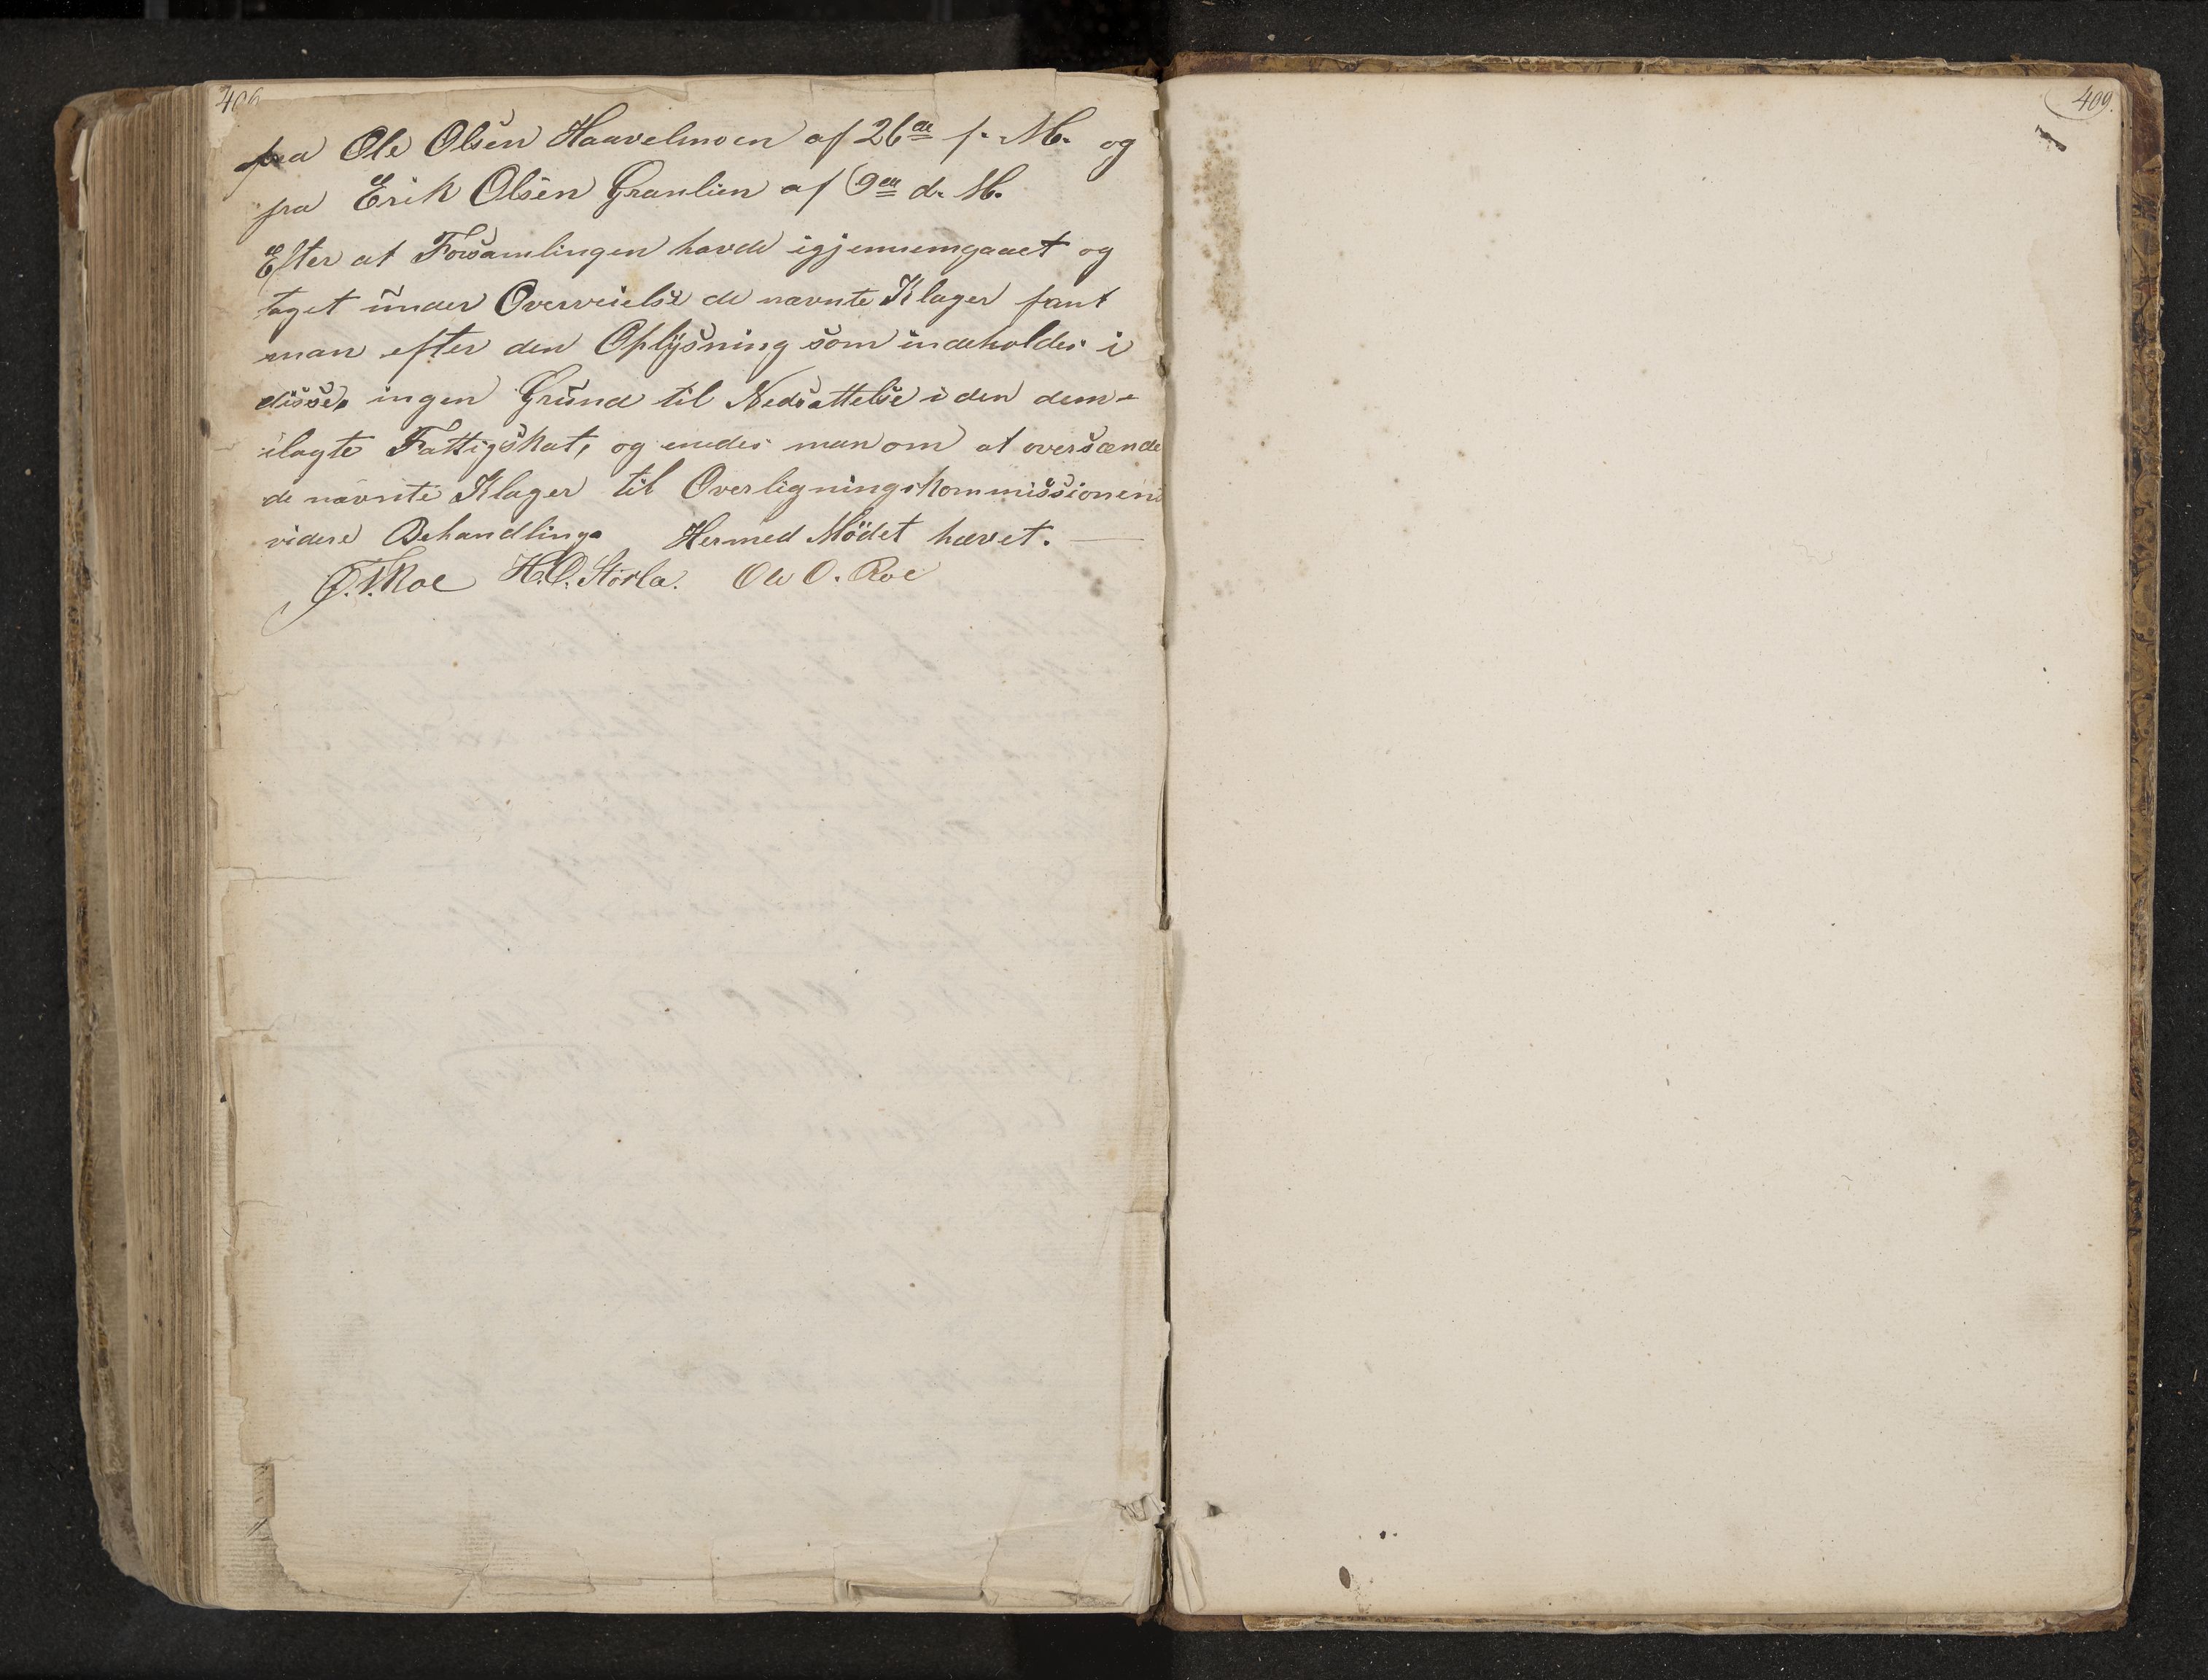 406
fra Ole Olsen Haavelmoen af 26de f. M. og
fra Erik Olsen Granlien af 9de d. M.
Efter at Forsamlingen havde igjennemgaaet og
taget under Overveielse de nævnte Klager fant
man efter den Oplysning som indeholdes i
disse, ingen Grund til Nedsættelse i den dem
ilagte Fattigskat, og enedes man om at oversænde
de nævnte Klager til Overligningskommissionens
videre Behandling. Hermed Mödet hævet. —
H. O. Störla. Ole O. Roe
409.